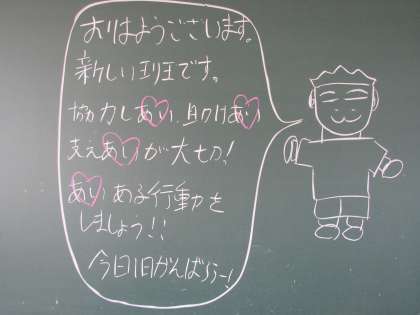 おはようございます。
新しい班です。
協力しあい、助けあい
支えあいが大切!
あいある行動を
しましょう!!
今日1日がんばろうー!